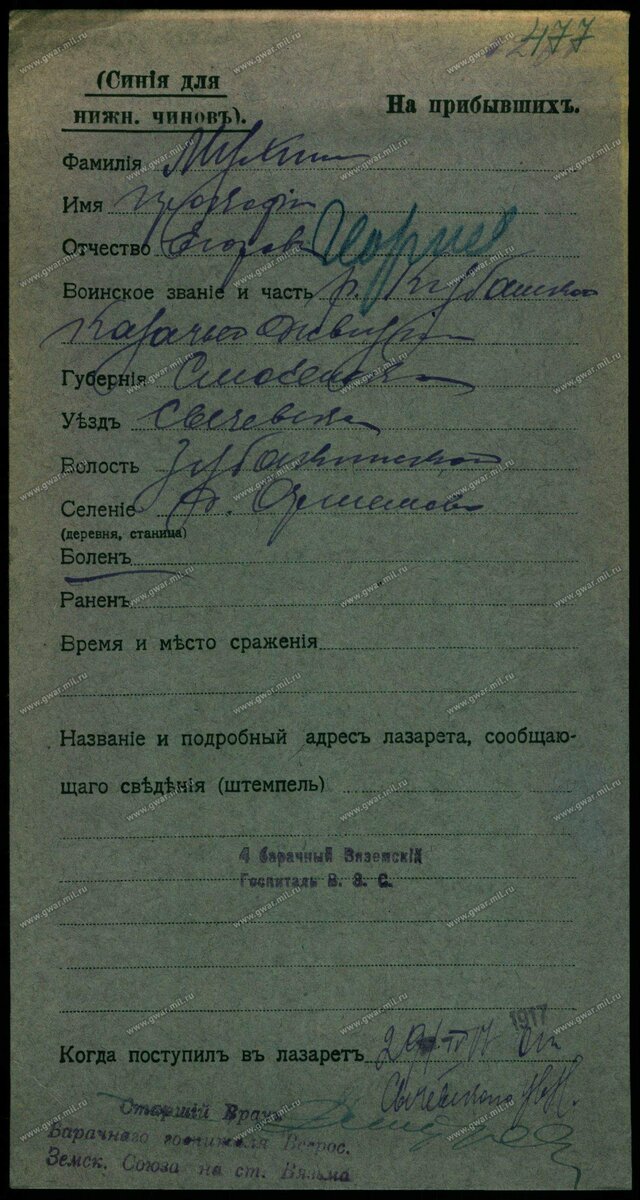 477
(Синія для
нижн. чиновъ).
На прибывшихъ.
Фамилія Мухин
Имя
Отчество Егоров Георгиев
Воинское званіе и часть р. Кубанской
Казачьей дивизіи
Губернія Смоленск
Уѣздъ Сычевск
Волость
Селеніе д.
(деревня, станица)
Боленъ
Раненъ
Время и мѣсто сраженія
Названіе и подробный адресъ лазарета, сообщаю-
щаго свѣдѣнія (штемпель)
4 барачный Вяземскій
Госпиталь В. З. С.
1917
Когда поступилъ въ лазаретъ 29/IV 17 от
Сычевского
Старшій Врачъ
Барачнаго госпиталя Всерос.
Земск. Союза на ст. Вязьма
www.gwar.mil.ru